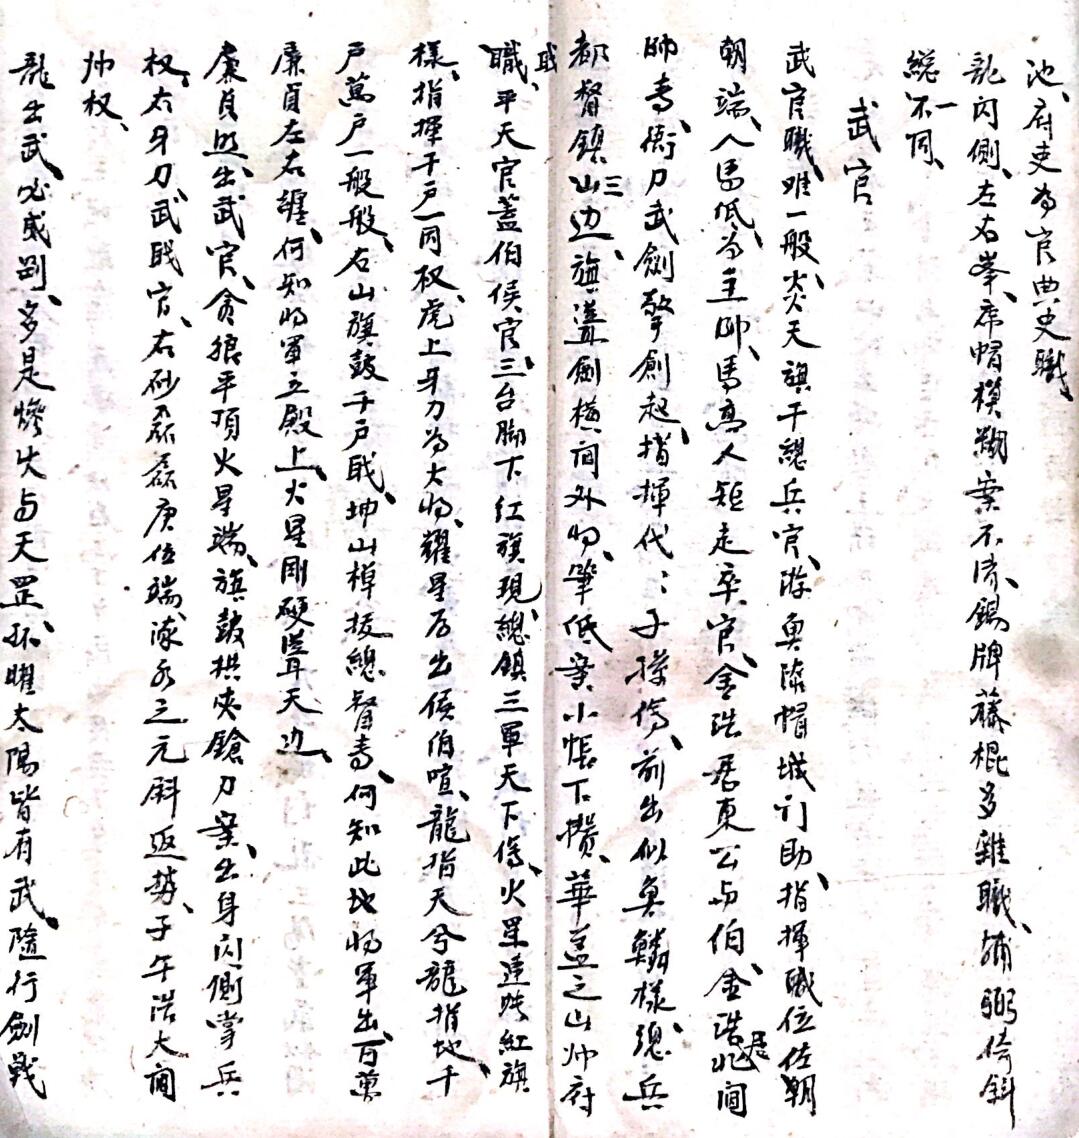 池、府吏为官典史職、
龍閃側、左右峯、席帽模糊案不清、錫牌藤棍多雜職、輔弼倚斜
總不一同、
武官
武官職、难一般、炎天旗干總兵官、游魚隊帽城门助、指揮職位佐朝
朝端、人馬低为主帥、馬高人矩走卒官、金浩居東公与伯、金浩居北阃
帥专、衙刀武劍擎創起、指揮代〻子孫傳、前出似魚鱗樣、總兵
都督鎮三山边、旗溋劍橫阃外将、筆低案小帳下攢、華盖之山帅府
職、平天官蓋伯侯官、三台脚下红旗現、總鎮三軍天下傳、火星連珠紅旗
樣、指揮千户一同权、虎上牙刀为大将、耀星应出侯伯喧、龍指天兮龍指地、千
户萬户一般般、右山旗鼓千户戝、坤山棹拔總督专、何知此地将軍出、百萬
廉貞左右纏、何知将軍立殿上、火星剛硬聳天边、
廉貞照出武官、贪狼平頂火星端、旗鼓拱夾鎗刀案、出身闪側掌兵
权、右身刀、武戝官、右砂磊磊庚位端、派永之元斜返势、子午浩大阃
帅权、
龍出武、必威剛、多是燥火与天罡、孤曜太陽皆有武、隨行劍戟